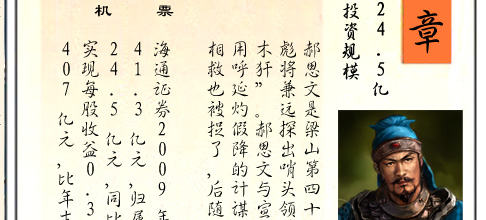 章
24.5亿
投资规模
郝思文是梁山第四十
彪将兼远探出哨头领
木犴”。郝思文与宣
用呼延灼假降的计谋
相救也被捉了,后随
机 票
海通证券2009年
41.3亿元,归属
24.5亿元,同比
实现每股收益0.3
407亿元,比年